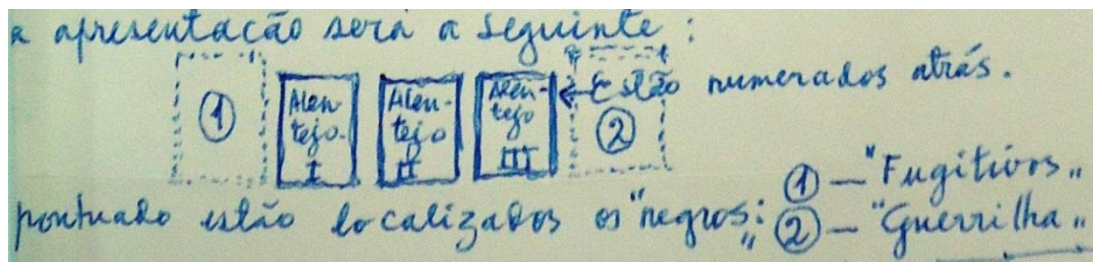 a apresentação será a seguinte:
① Alen-tejo I Alen-tejo II Alen-tejo III ② ← Estão numerados atrás.
① — "Fugitivos„
pontuado estão localizados os "negros„: ② — "Guerrilha„